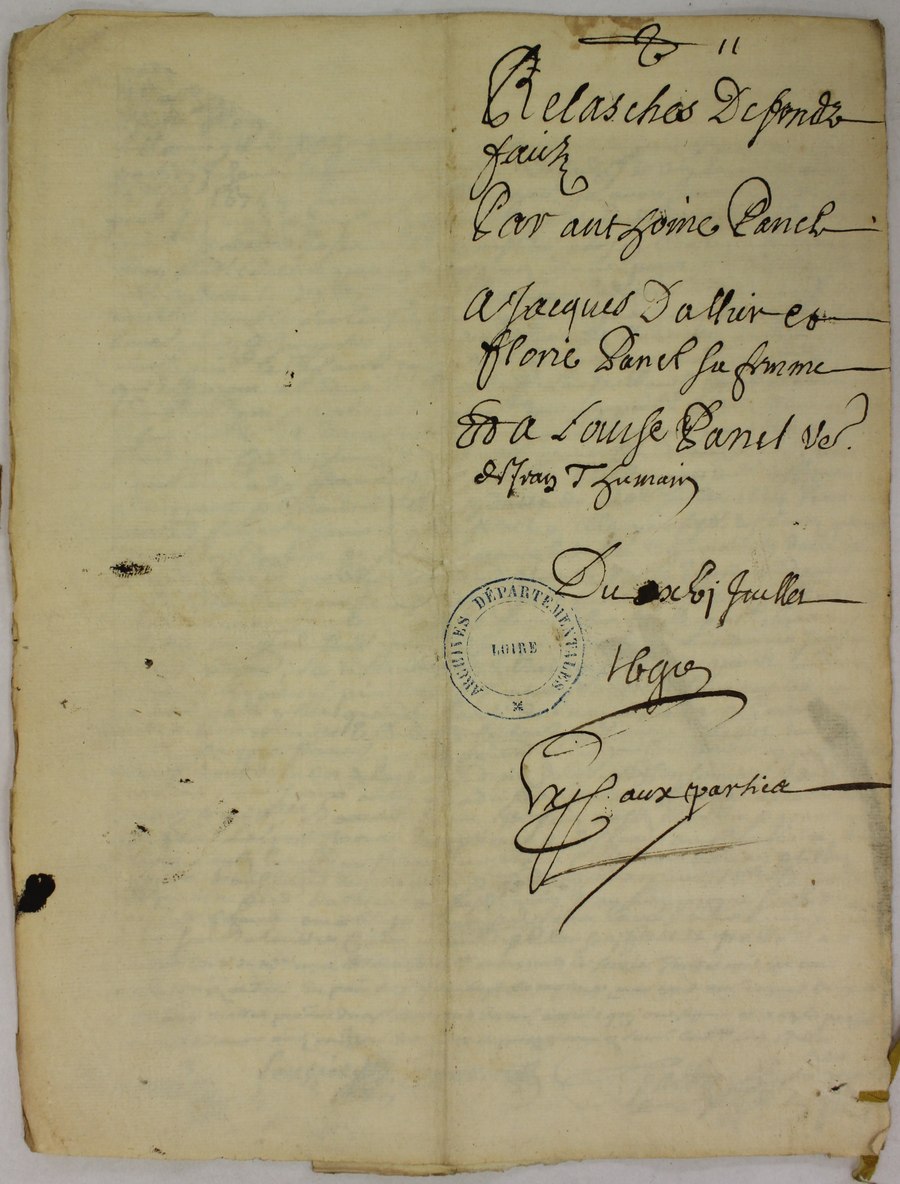 11
Relasches De fondz
faictz
Par anthoine Panel
A Jacques Dallier et
florie Panel sa femme
Et a Louise Panel ve.
de Jean Thumain
Du xxbj Juillet
ARCHIVES DÉPARTEMENTALES
LOIRE
aux parties